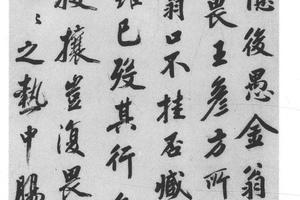 後愚金翁
畏王彦方所
翁口不挂否臧
雖已發其行
攘豈復畏
之熱中